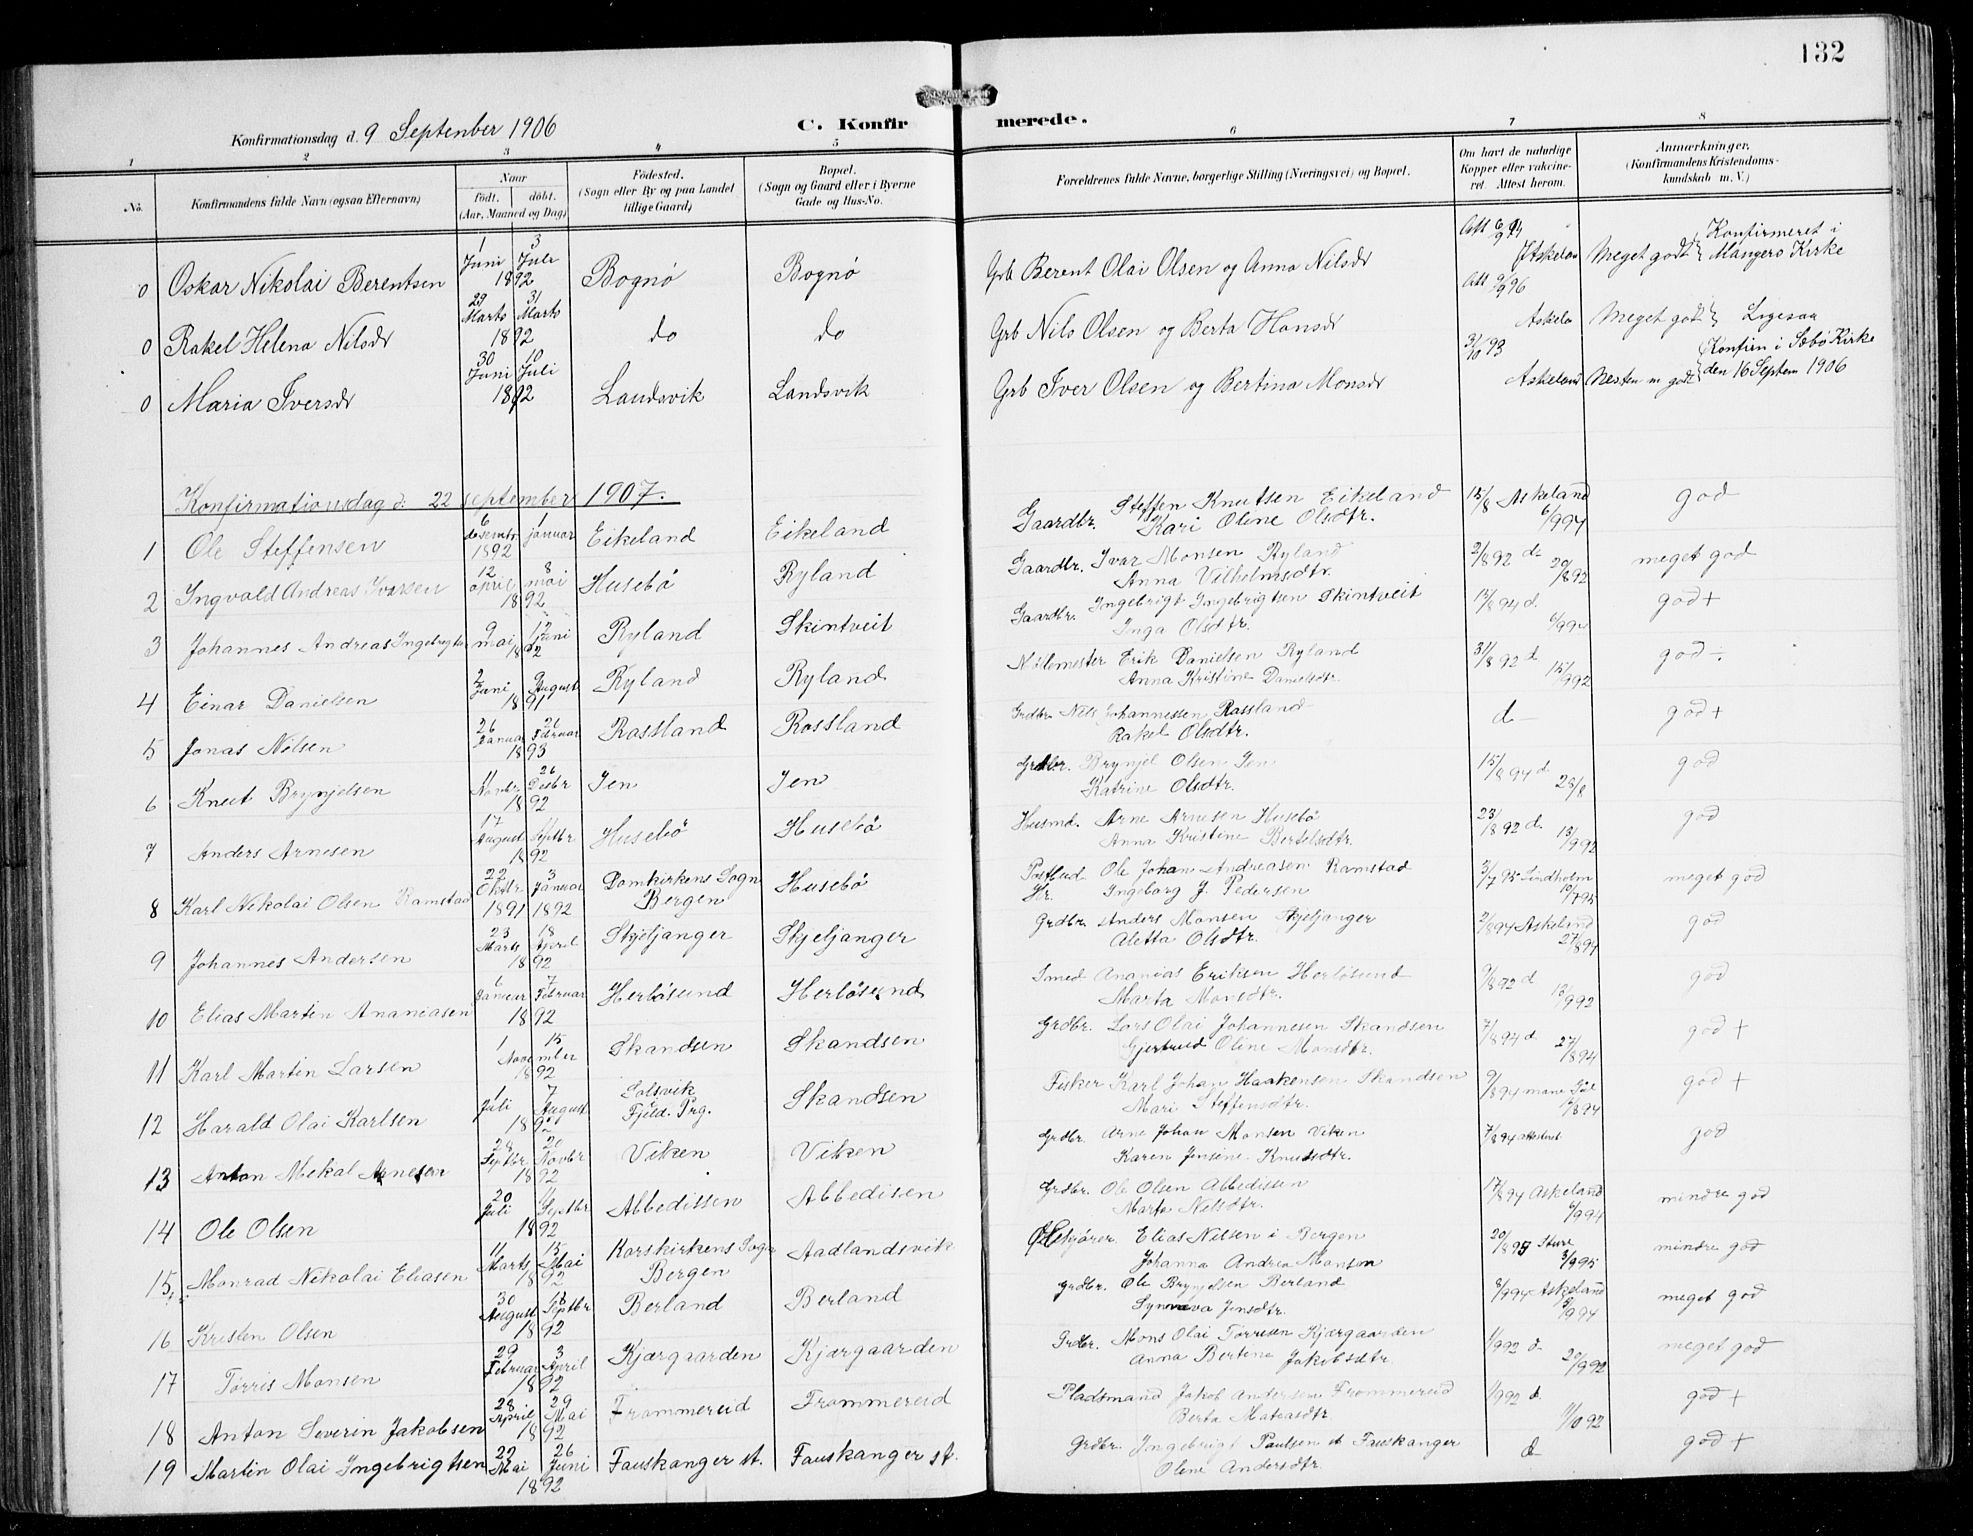 132
Konfirmationsdag d. 9 September 1906
C. Konfirmerede.
1 2 3 4 5 6 7 8
No. Konfirmandens fulde Navn (ogsaa Efternavn) Naar födt. döbt. (Aar, Maaned og Dag) Födested. (Sogn eller By og paa Landet tillige Gaard) Bopæl. (Sogn og Gaard eller i Byerne Gade og Hus-No. Forældrenes fulde Navne, borgerlige Stilling (Næringsvei) og Bopæl. Om havt de naturlige Kopper eller vakcineret. Attest herom. Anmærkninger. (Konfirmandens Kristendomskundskab m. V.)
0 Oskar Nikolai Berentsen 1 Juni 3 Juli 1892 Bognö Bognö Grb Berent Olai Olsen og Anna Nilsdr Att 6/9 94 Meget godt Konfirmeret i Mangerö Kirke
0 Rakel Helena Nilsdr 29 Marts 31 Marts 1892 do do Grb Nils Olsen og Berta Hansdr Att 9/9 96 Askela Meget godt Ligesaa
0 Maria Iversdr 30 Juni 10 Juli 1892 Landsvik Landsvik Grb Iver Olsen og Bertina Monsdr 31/10 93 Askeland Nesten m godt Konfirm i Sæbö Kirke den 16 Septem 1906
Konfirmationsdag d: 22 september 1907.
1 Ole Steffensen 6 desembr 1 januar 1892 Eikeland Eikeland Gaardbr. Steffen Knutsen Eikeland Kari Oline Olsdtr. 15/8 Askeland 6/9 94 god
2 Ingvald Andreas Ivarsen 12 april 8 mai 1892 Husebö Ryland Gaardbr. Ivar Monsen Ryland Anna Vilhelmsdtr. 2/8 92 d- 20/8 92 meget god
3 Johannes Andreas Ingebrigts 9 mai 12 juni 1892 Ryland Skintveit Gaardbr. Ingebrigt Ingebrigtsen Skintveit Inga Olsdtr. 13/8 94 d. 6/9 94 god +
4 Einar Danielsen 2 Juni 9 August 1891 Ryland Ryland Nölemester Erik Danielsen Ryland Anna Kristine Danielsdtr. 31/8 92 d 15/9 92 god ÷
5 Jonas Nilsen 26 Januar 26 Februar 1893 Rossland Rossland Grdbr. Nils Johannessen Rossland Rakel Olsdtr. d- god +
6 Knut Brynjelsen 11 Novbr 26 Decbr 1892 Jen Jen Grdbr. Brynjel Olsen Jen Katrine Olsdtr. 15/8 94 d 28/8 god
7 Anders Arnesen 17 August Septbr 1892 Husebö Husebö Husmd. Arne Arnesen Husebö Anna Kristine Bertelsdtr. 23/8 92 d. 13/9 92 god
8 Karl Nikolai Olsen Ramstad 22 Oktbr 1891 3 Januar 1892 Domkirkens Sogn Bergen Husebö Postbud Ole Johan Andreasen Ramstad Hr. Ingeborg J. Pedersen 3/7 95 Lindholm 10/7 95 meget god
9 Johannes Andersen 23 Marts 18 April 1892 Skjeljanger Skjeljanger Grdbr. Anders Monsen Skjeljanger Aletta Olsdtr. 2/8 94 Askeland 27/8 94 god
10 Elias Martin Ananiasen 6 Januar 7 Februar 1892 Herlösund Herlösund Smed Ananias Eriksen Herlösund Marta Monsdtr. 9/8 92 d 13/9 92 god
11 Karl Martin Larsen 1 15 November 1892 Skandsen Skandsen Grdbr. Lars Olai Johannesen Skandsen Gjertrud Oline Monsdtr. 7/8 94 d 27/8 94 god +
12 Harald Olai Karlsen 1 Juli 7 August 1892 Solsvik Fjeld. Prg. Skandsen Fisker Karl Johan Haakensen Skandsen Mari Steffensdtr. 9/8 94 god +
13 Anton Mekal Arnesen 28 Septbr 20 Novbr 1892 Viken Viken Grdbr. Arne Johan Monsen Viken Karen Jensine Knudsdtr. 7/8 94 attesteret god
14 Ole Olsen 20 Juli 11 Septbr 1892 Abbedissen Abbedisen Grdbr. Ole Olsen Abbedissen Marta Nilsdtr. 17/8 94 Askeland 6/9 94 mindre god
15 Monrad Nikolai Eliasen 11 Marts 15 Mai 1892 Korskirkens Sogn Bergen Aadlandsvik Elias Nilsen i Bergen Johanna Andrea Monson 20/8 95 Sture 3/9 95 mindre god
16 Kristen Olsen 30 August 18 Septbr 1892 Berland Berland Grdbr. Ole Brynjelsen Berland Synneva Jensdtr. 8/9 94 Askeland 8/9 94 meget god
17 Törris Monsen 29 Februar 3 April 1892 Kjærgaarden Kjærgaarden Grdbr. Mons Olai Törrisen Kjærgaarden Anna Bertine Jakobsdtr. 1/9 92 d 20/9 92 meget god
18 Anton Severin Jakobsen 28 April 29 Mai 1892 Frommereid Frommereid Pladsmand Jakob Andersen Frommereid Berta Matiasdtr. 1/9 92 d. 11/10 92 god +
19 Martin Olai Ingebrigtsen 22 Mai 26 Juni 1892 Fauskanger st. Fauskanger st. Grdbr. Ingebrigt Paulsen st Fauskanger Oline Andersdtr. d god +